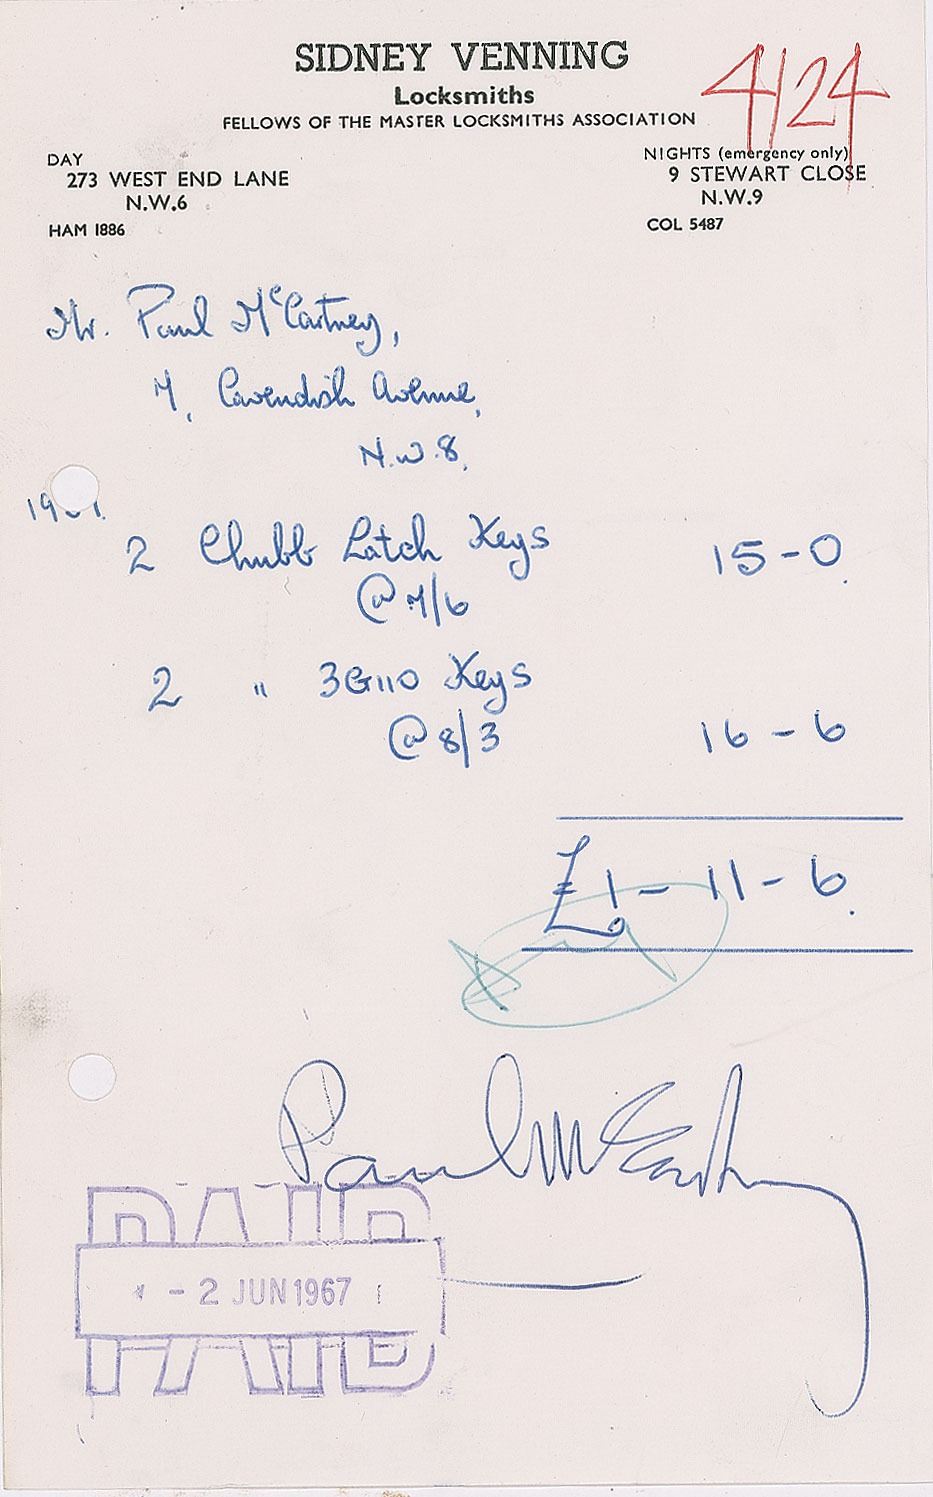 SIDNEY VENNING
4/24
Locksmiths
FELLOWS OF THE MASTER LOCKSMITHS ASSOCIATION
DAY
273 WEST END LANE
N.W.6
HAM 1886
NIGHTS (emergency only)
9 STEWART CLOSE
N.W.9
COL 5487
Mr. Paul McCartney,
7, Cavendish Avenue,
N.W.8.
2 Chubb Latch Keys 15-0.
@ 7/6
2 " 3G110 Keys
@ 8/3 16-6
£1-11-6.
Paul McCartney
PAID
-2 JUN 1967